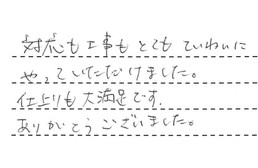 対応も工事もとてもていねいに
やっていただけました。
仕上りも大満足です.
ありがとうございました。